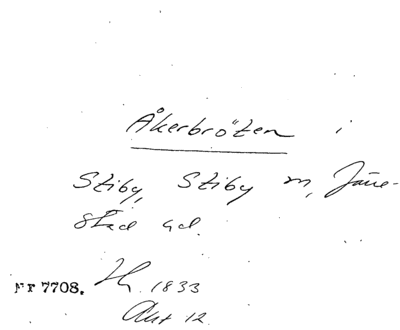 Åkerbröten i
Stiby, Stiby sn, Järre-
stad hd.
Nr 7708. Th. 1833
Akt 12